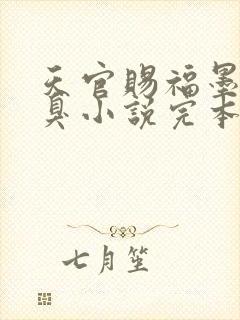 天官赐福墨
臭小说完本
七月笙